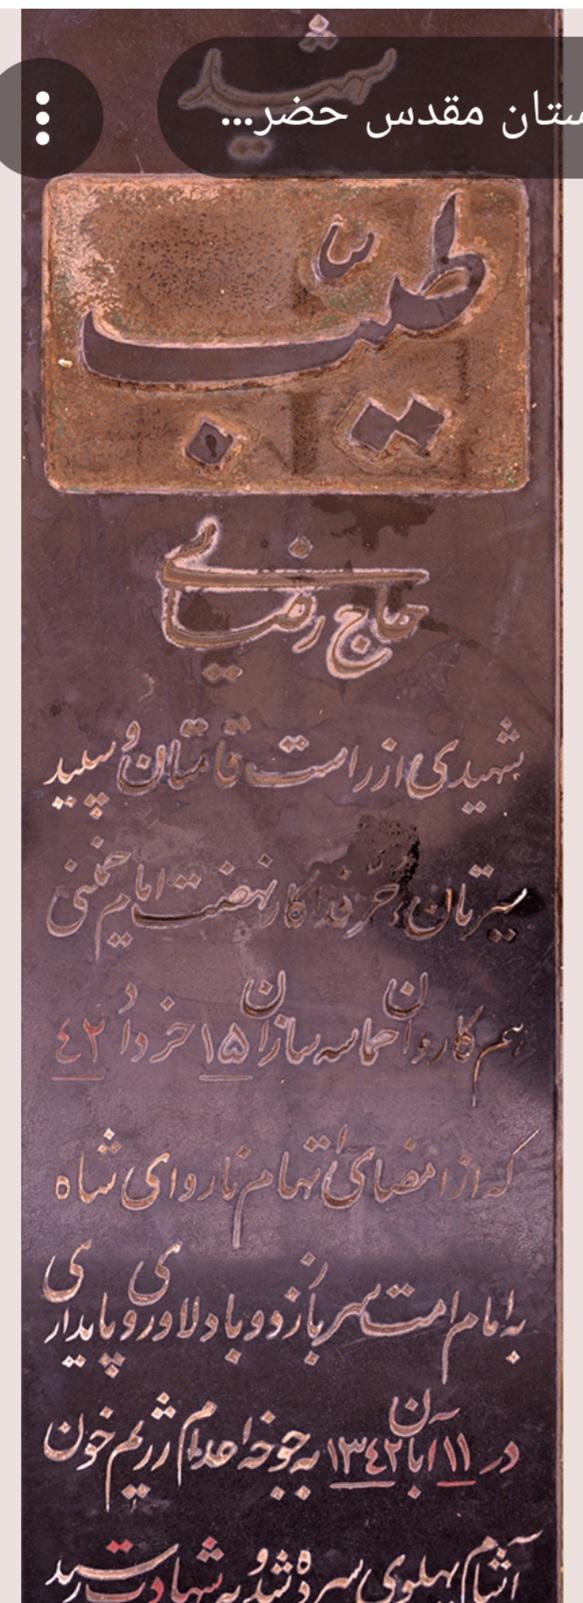 شهید
ستان مقدس حضر...
طیّب
حاج رضایی
شهیدی از راست قامتان و سپید
سیرتان، حُر فداکار نهضت امام خمینی
هم کاروان حماسه سازان ۱۵ خرداد ۴۲
که از امضای اتهام ناروای شاه
به امام امت سر باز زد و با دلاوری و پایداری
در ۱۱ آبان ۱۳۴۲ به جوخه اعدام رژیم خون
آشام پهلوی سپرده شد و به شهادت رسید